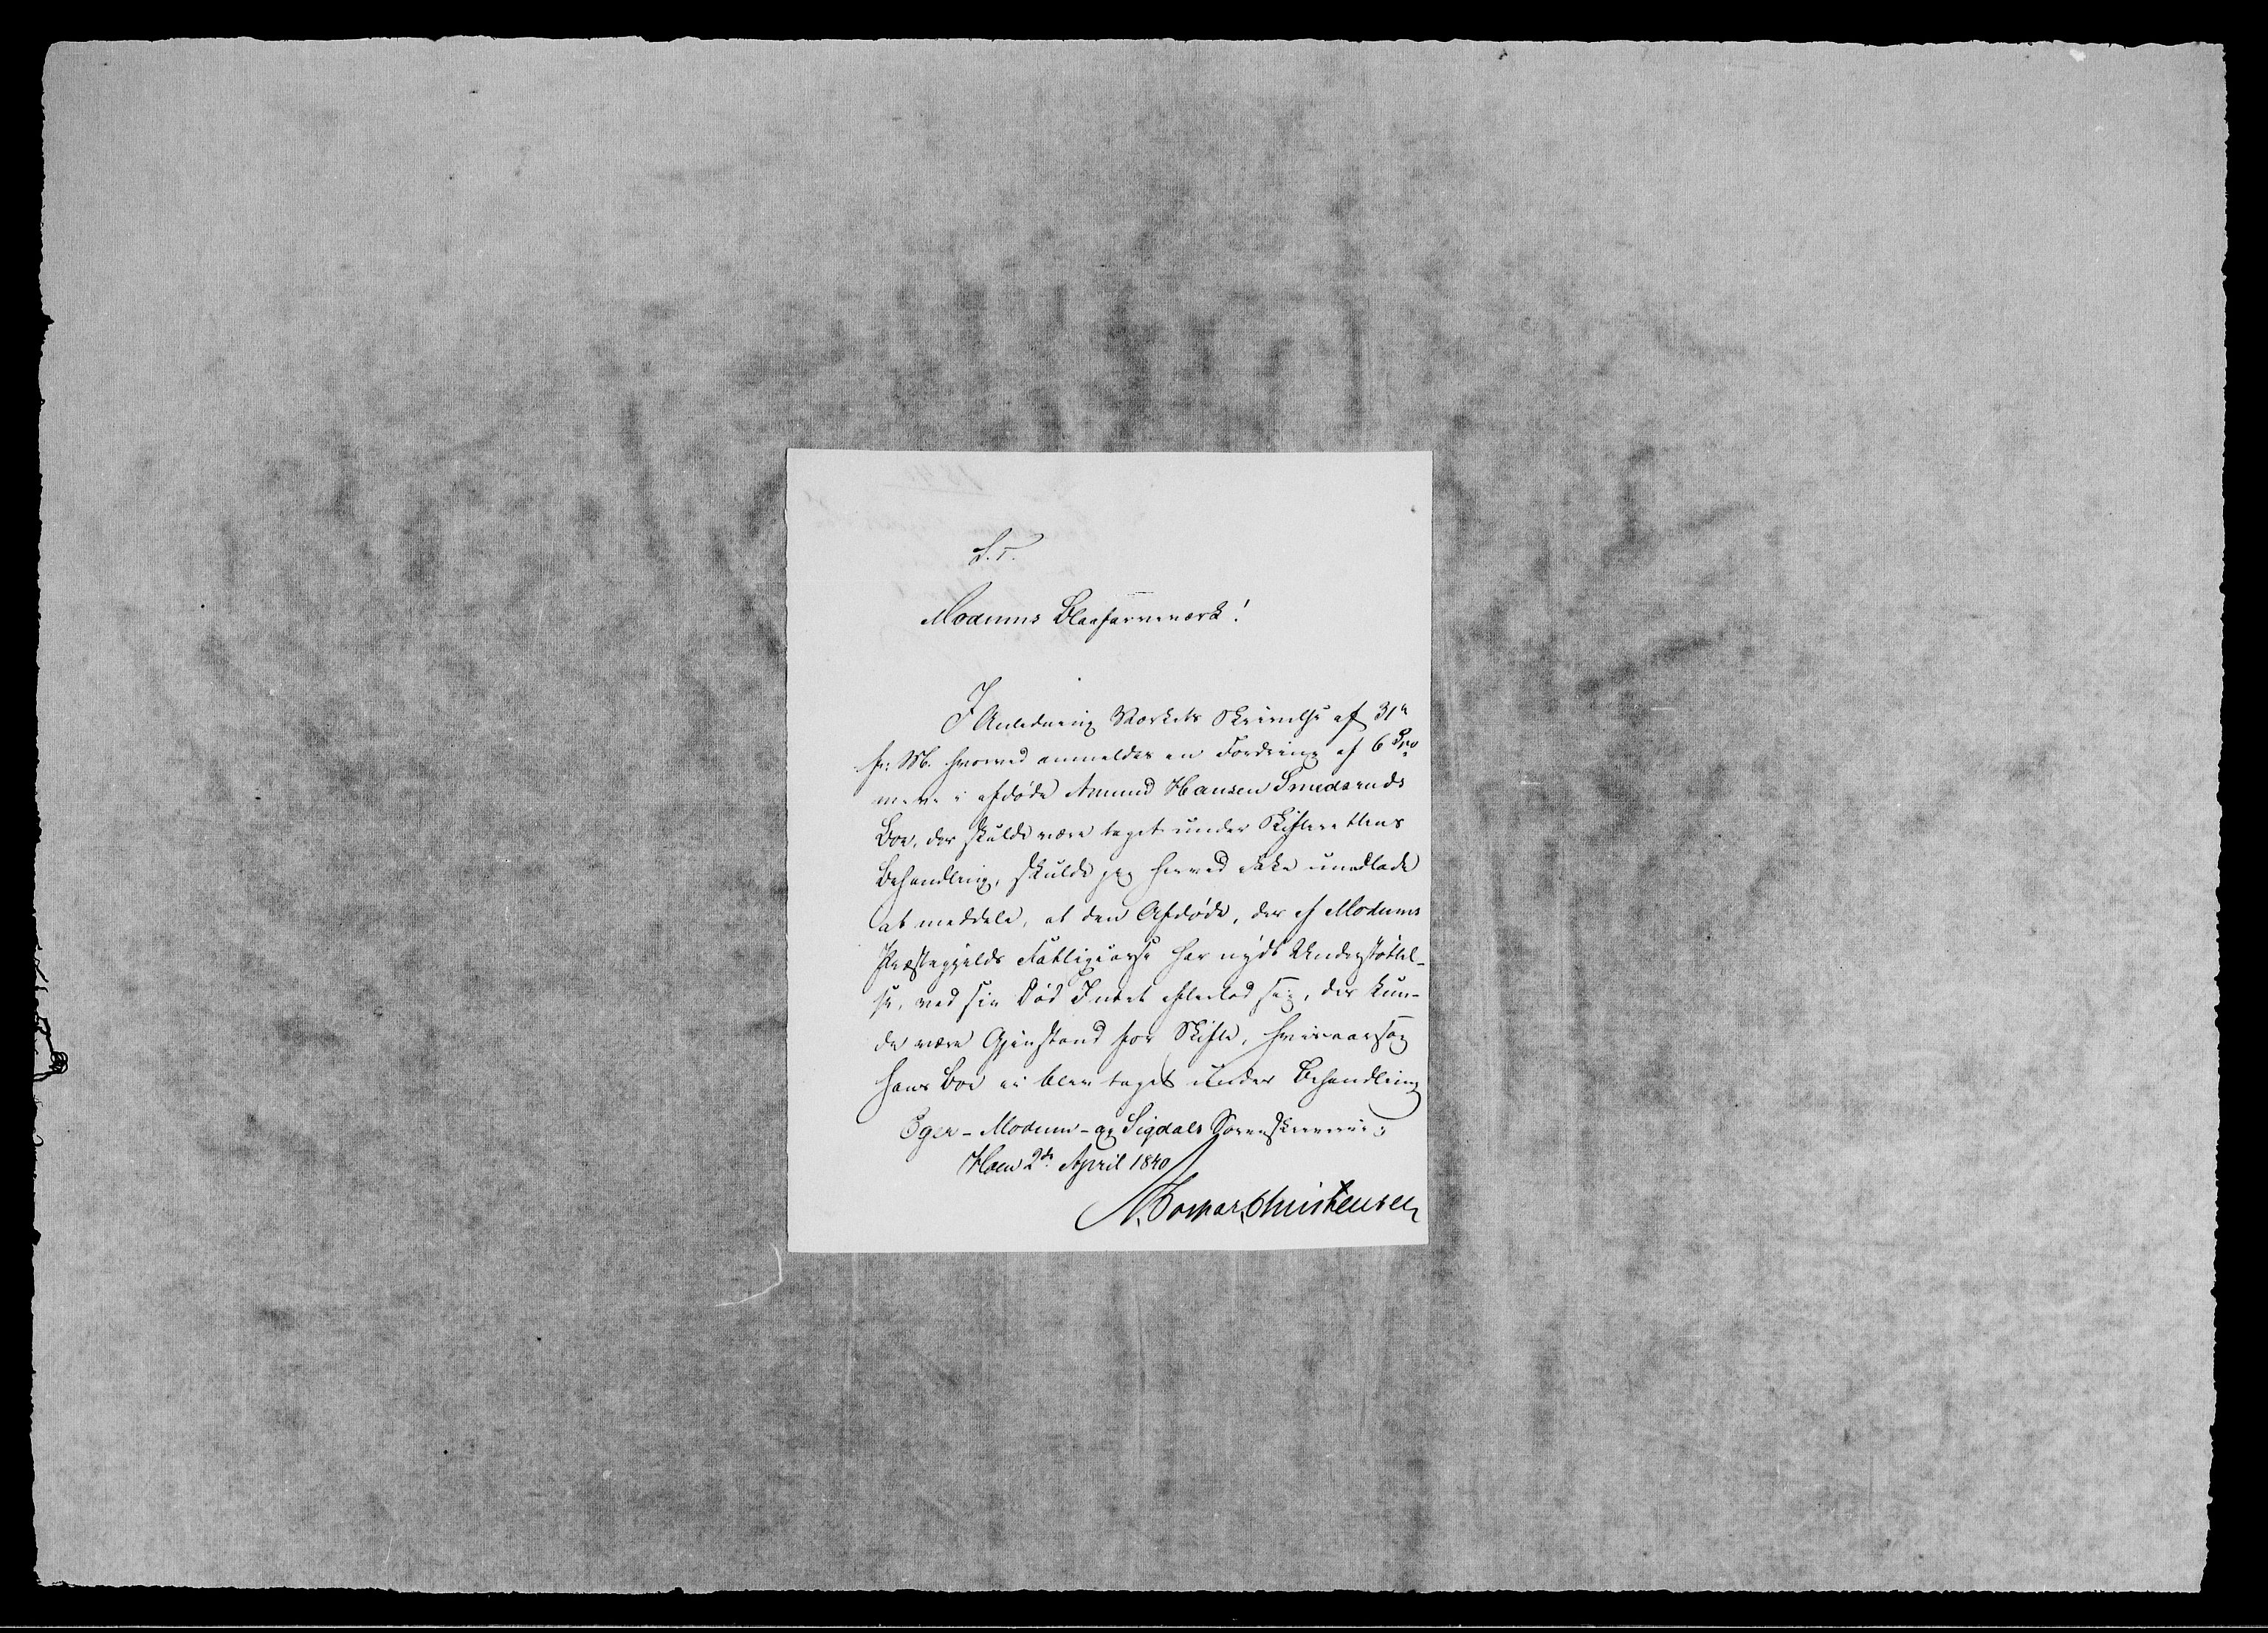 S. T.
Modums Blaafarveværk!
I Anledning Værkets Skrivelse af 31te
f: M. hvorved anmeldes en Fordring af 6 Spd
m. v. i afdøde Amund Hansen Smedsruds
Boe, der skulde være taget under Skifterettens
Behandling, skulde jeg herved ikke undlade
at meddele, at den Afdøde, der af Modums
Præstegjelds Fattigcasse har nydt Understøttel-
se, ved sin Død Intet efterlod sig, der kun-
de være Gjenstand for Skifte, hvisaarsag
hans Boe ei blev taget under Behandling
Eger- Modum- og Sigdals Sorenskriverie;
Haen 2de April 1840
Christensen